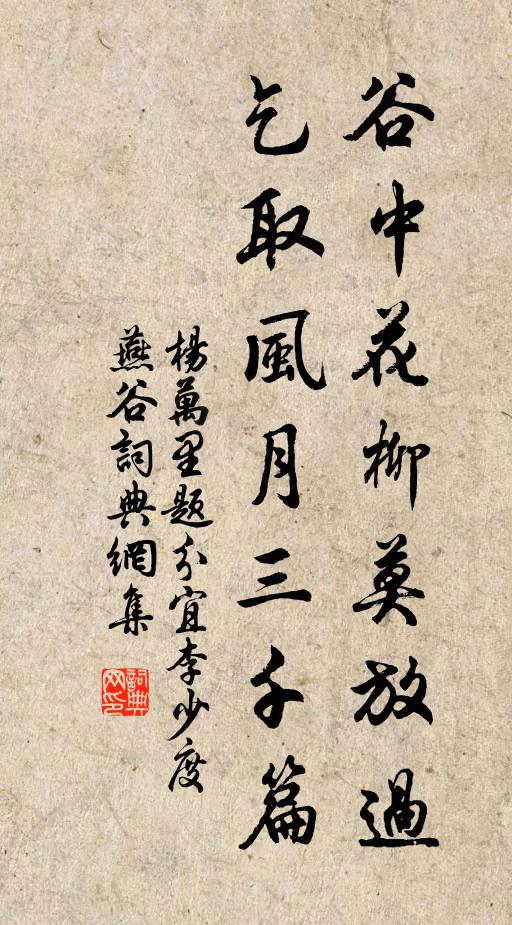 谷中花柳莫放過
乞取風月三千篇
楊萬里題分宜李少度
燕谷詞典網集
詞典网印